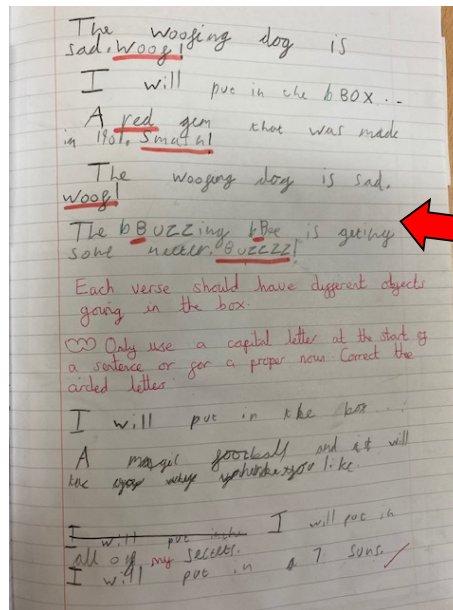 The woofing dog is
sad. Woof!
I will put in the bBOX...
A red gem that was made
in 1901. Smash!
The woofing dog is sad.
woof!
The bBUZZing bBee is geting
some necter. BUZZZZ!
Each verse should have different objects
going in the box.
Only use a capital letter at the start of
a sentence or for a proper noun. Correct the
circled letters.
I will put in the box...
A football and it will
you like.
I will put in the I will put in
all of my secrets.
I will put in a 7 suns.